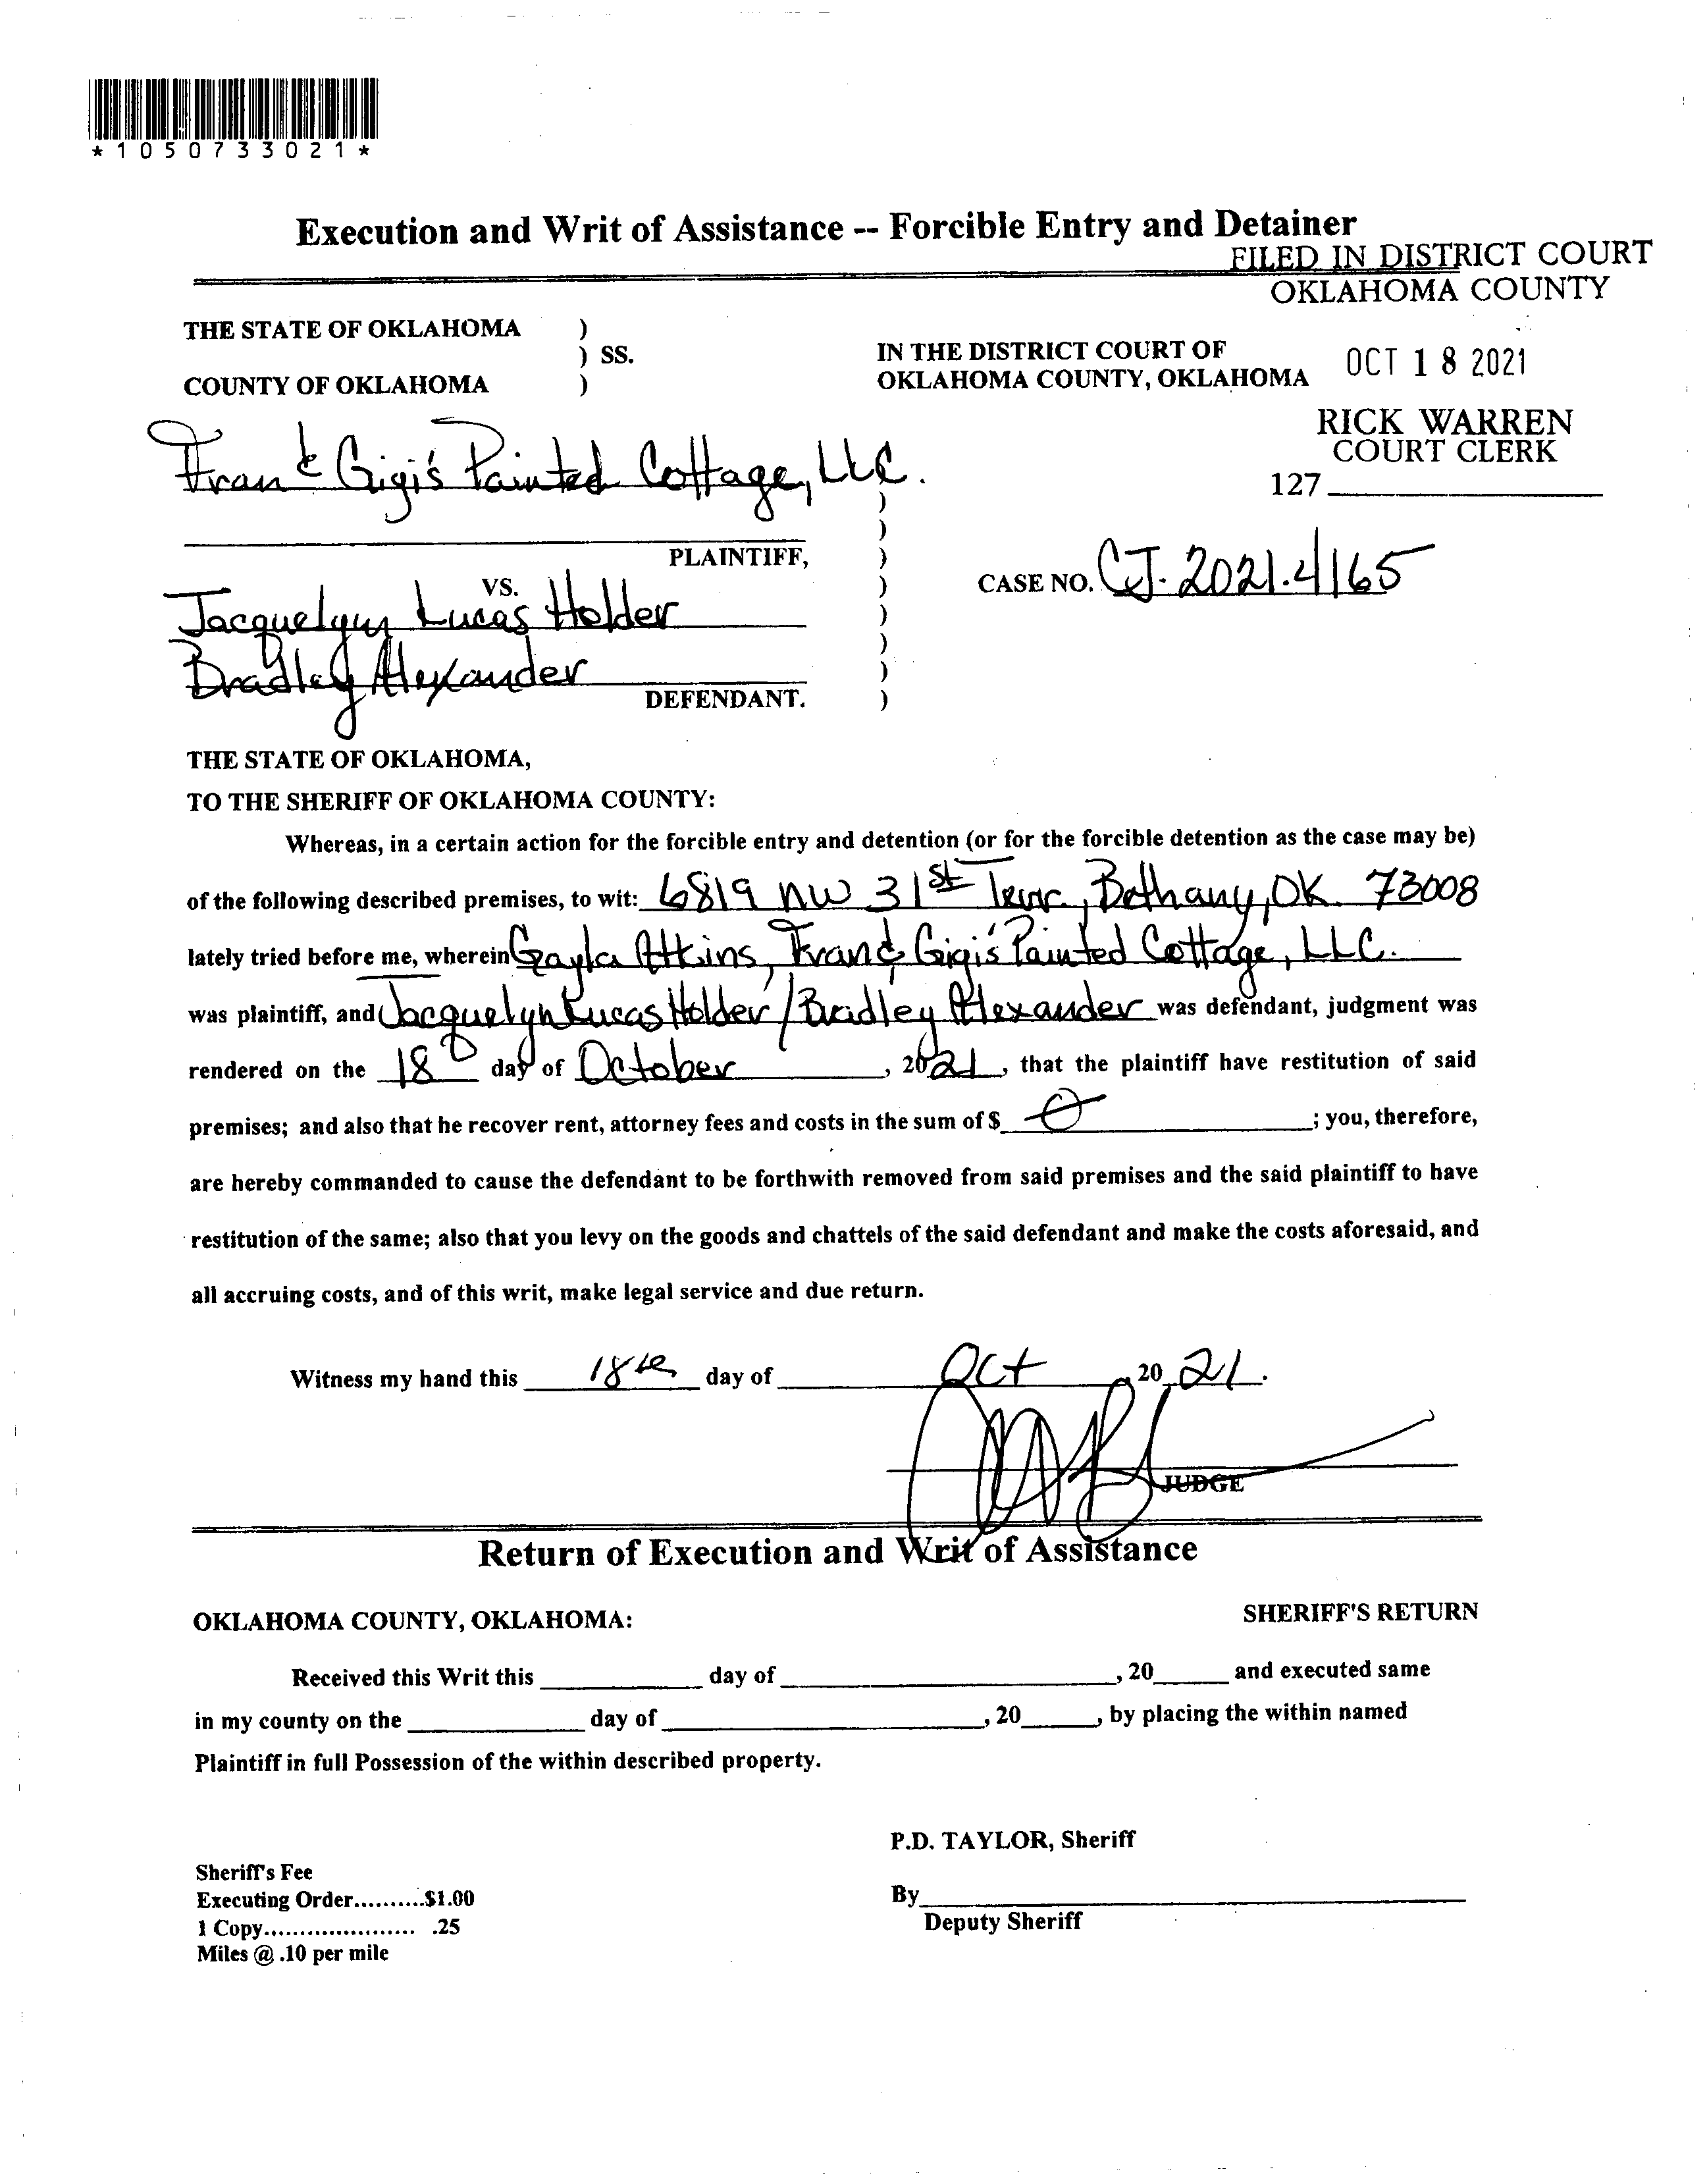 *1050733021*
Execution and Writ of Assistance -- Forcible Entry and Detainer
FILED IN DISTRICT COURT
OKLAHOMA COUNTY
THE STATE OF OKLAHOMA )
) SS.
COUNTY OF OKLAHOMA )
IN THE DISTRICT COURT OF
OKLAHOMA COUNTY, OKLAHOMA
OCT 18 2021
RICK WARREN
COURT CLERK
127
Fran & Gigi's Painted Cottage, LLC.
)
)
PLAINTIFF, )
VS. )
CASE NO. CJ-2021-4165
Jacquelyn Lucas Holder )
)
Bradley Alexander )
DEFENDANT. )
THE STATE OF OKLAHOMA,
TO THE SHERIFF OF OKLAHOMA COUNTY:
Whereas, in a certain action for the forcible entry and detention (or for the forcible detention as the case may be)
of the following described premises, to wit: 6819 NW 31st Terr, Bethany, OK. 73008
lately tried before me, wherein Gayla Atkins, Fran & Gigi's Painted Cottage, LLC.
was plaintiff, and Jacquelyn Lucas Holder / Bradley Alexander was defendant, judgment was
rendered on the 18 day of October, 2021, that the plaintiff have restitution of said
premises; and also that he recover rent, attorney fees and costs in the sum of $ 0 ; you, therefore,
are hereby commanded to cause the defendant to be forthwith removed from said premises and the said plaintiff to have
restitution of the same; also that you levy on the goods and chattels of the said defendant and make the costs aforesaid, and
all accruing costs, and of this writ, make legal service and due return.
Witness my hand this 18th day of Oct, 20 21.
JUDGE
Return of Execution and Writ of Assistance
OKLAHOMA COUNTY, OKLAHOMA: SHERIFF'S RETURN
Received this Writ this ____ day of ____, 20____ and executed same
in my county on the ____ day of ____, 20____, by placing the within named
Plaintiff in full Possession of the within described property.
P.D. TAYLOR, Sheriff
Sheriff's Fee
Executing Order..........$1.00
By____
1 Copy..................... .25
Deputy Sheriff
Miles @ .10 per mile